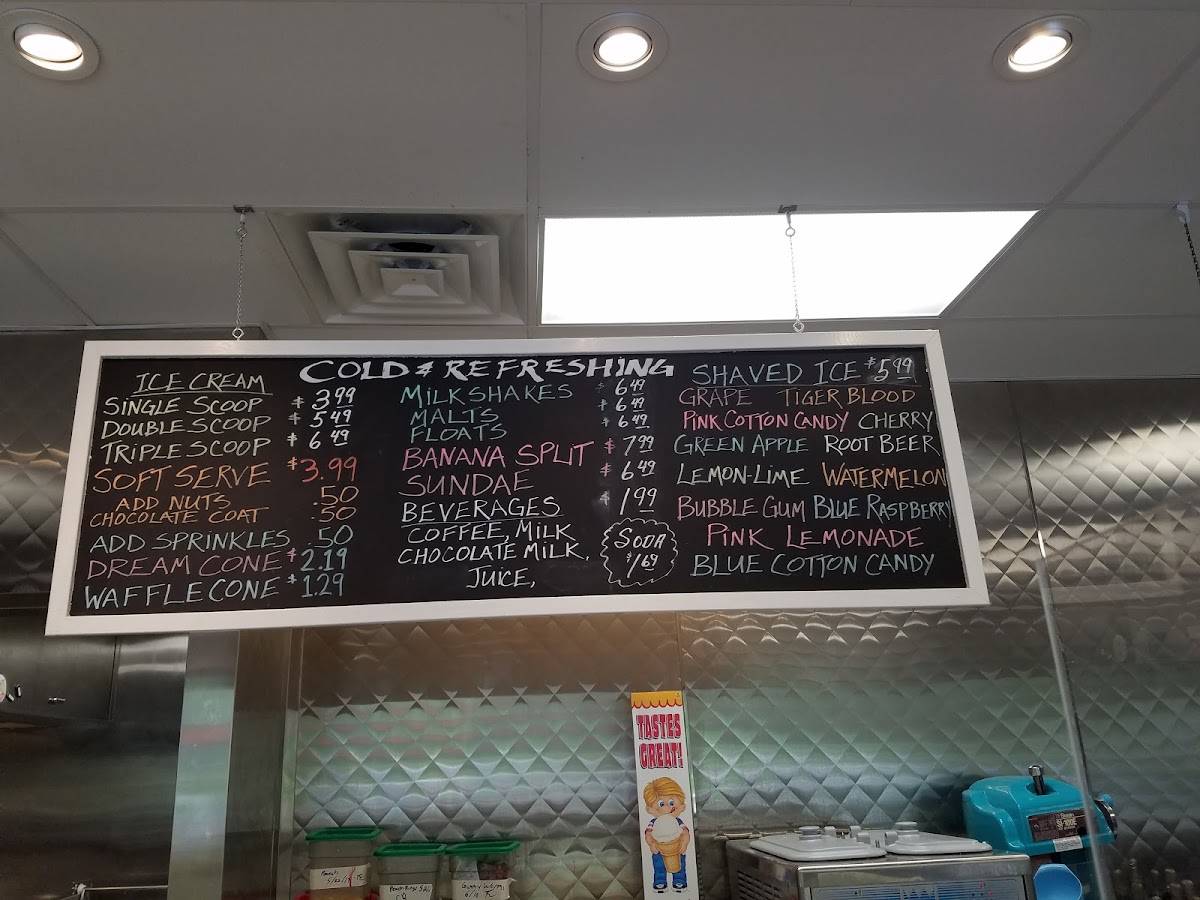 COLD & REFRESHING
ICE CREAM
SINGLE SCOOP $3.99
DOUBLE SCOOP $5.49
TRIPLE SCOOP $6.49
SOFT SERVE $3.99
ADD NUTS .50
CHOCOLATE COAT .50
ADD SPRINKLES .50
DREAM CONE $2.19
WAFFLE CONE $1.29
MILKSHAKES $6.49
MALTS $6.49
FLOATS $6.49
BANANA SPLIT $7.99
SUNDAE $6.49
BEVERAGES $1.99
COFFEE, MILK
CHOCOLATE MILK,
JUICE,
SODA
$1.69
SHAVED ICE $5.99
GRAPE TIGER BLOOD
PINK COTTON CANDY CHERRY
GREEN APPLE ROOT BEER
LEMON-LIME WATERMELON
BUBBLE GUM BLUE RASPBERRY
PINK LEMONADE
BLUE COTTON CANDY
TASTES
GREAT!